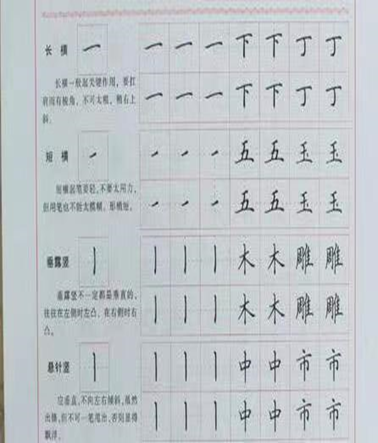 长横 一 一 一 一 下 下 丁 丁
长横一般起关键作用，要扛
一 一 一 下 下 丁 丁
肩而有棱角，不可太粗，稍右上
斜。
短横 一 一 一 一 五 五 玉 玉
短横起笔要轻，不要太用力，
一 一 一 五 五 玉 玉
但用笔也不能太模糊，形稍短。
垂露竖 丨 丨 丨 丨 木 木 雕 雕
垂露竖不一定都是垂直的，
丨 丨 丨 木 木 雕 雕
往往在左侧时左凸，在右侧时右
凸。
悬针竖 丨 丨 丨 丨 中 中 市 市
应垂直，不向左右倾斜，虽然
丨 丨 丨 中 中 市 市
出锋，但不可一笔甩出，否则显得
飘浮。